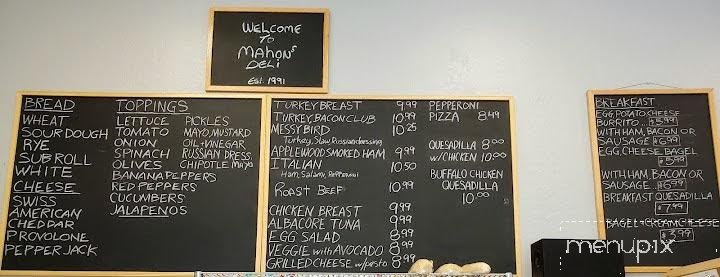 WELCOME
TO
MAHON'S
DELI
EST. 1991
BREAD
WHEAT
SOURDOUGH
RYE
SUB ROLL
WHITE
CHEESE
SWISS
AMERICAN
CHEDDAR
PROVOLONE
PEPPER JACK
TOPPINGS
LETTUCE PICKLES
TOMATO MAYO, MUSTARD
ONION OIL + VINEGAR
SPINACH RUSSIAN DRESS.
OLIVES CHIPOTLE Mayo
BANANA PEPPERS
RED PEPPERS
CUCUMBERS
JALAPENOS
TURKEY BREAST 9.99
TURKEY, BACON CLUB 10.99
MESSY BIRD 10.25
Turkey, Slaw, Russian dressing
APPLEWOOD SMOKED HAM 9.99
ITALIAN 10.50
Ham, Salami, Pepperoni
ROAST BEEF 10.99
CHICKEN BREAST 9.99
ALBACORE TUNA 9.99
EGG SALAD 8.99
VEGGIE with AVOCADO 8.99
GRILLED CHEESE w/pesto 8.99
PEPPERONI
PIZZA 8.49
QUESADILLA 8.00
w/CHICKEN 10.00
BUFFALO CHICKEN
QUESADILLA
10.00
BREAKFAST
EGG, POTATO, CHEESE
BURRITO... $5.99
WITH HAM, BACON OR
SAUSAGE $6.99
EGG, CHEESE BAGEL
$5.99
WITH HAM, BACON OR
SAUSAGE.. $6.99
BREAKFAST QUESADILLA
$7.99
BAGEL + CREAM CHEESE
$3.99
menupix